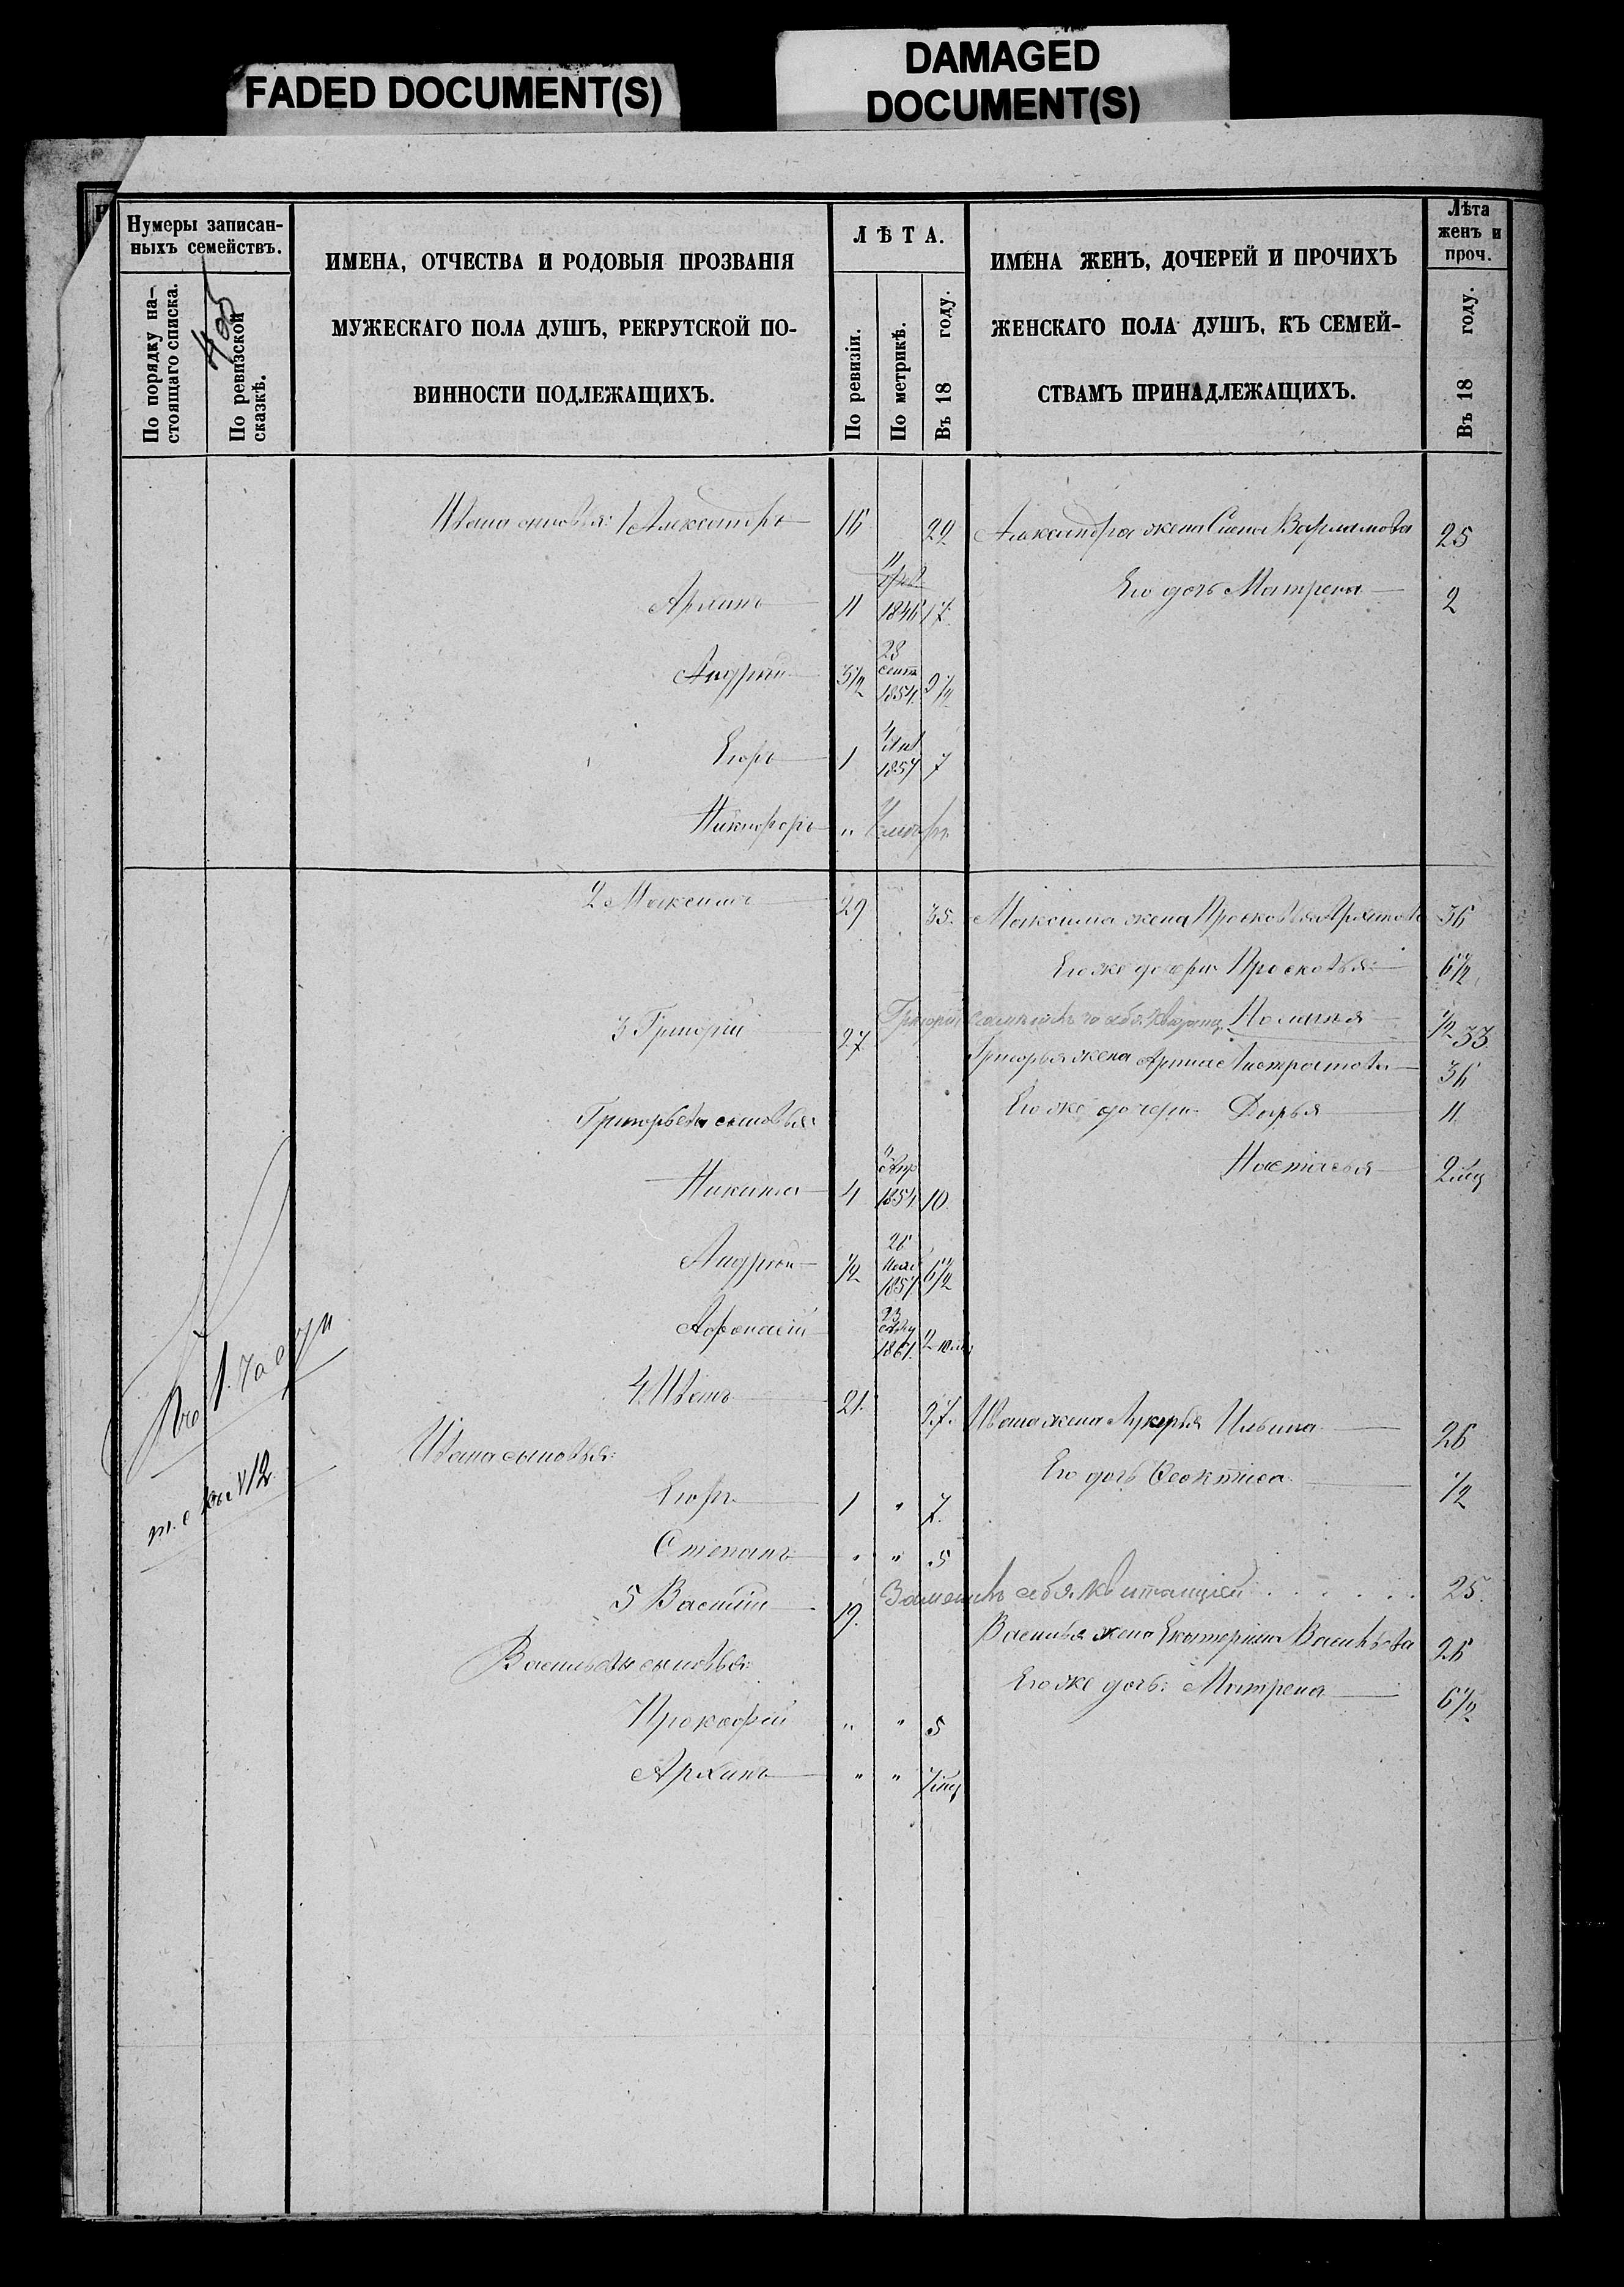 FADED DOCUMENT(S)
DAMAGED
DOCUMENT(S)
Нумеры записан-
ныхъ семействъ.
По порядку на-
стоящаго списка.
По ревизской
сказкѣ.
ИМЕНА, ОТЧЕСТВА И РОДОВЫЯ ПРОЗВАНІЯ
МУЖЕСКАГО ПОЛА ДУШЪ, РЕКРУТСКОЙ ПО-
ВИННОСТИ ПОДЛЕЖАЩИХЪ.
ЛѢТА.
По ревизіи.
По метрикѣ.
Въ 18 году.
ИМЕНА ЖЕНЪ, ДОЧЕРЕЙ И ПРОЧИХЪ
ЖЕНСКАГО ПОЛА ДУШЪ, КЪ СЕМЕЙ-
СТВАМЪ ПРИНАДЛЕЖАЩИХЪ.
Лѣта
женъ и
проч.
Въ 18 году.
Ивана сыновья: 1 Александръ 16 22 Александра жена Варламова 25
11 1846 17 Его дочь Матрена 2
Андрей 3½ 28 сент 1854 9½
Егоръ 1 4 1857 7
Никифоръ "
2 Максимъ 29 35 Максима жена Просковья Архипова 36
Его же дочери Просковья 6½
3 Григорій 27 Григорій Поланья ½ 33
Григорья жена Арина 36
Григорьевы сыновья: Его же дочери Дарья 11
Настасья
Никита 4 1854 10
Андрей ½ 26 1857 6½
Афонасій 23 1861
4 Иванъ 21 27 Ивана жена Лукерья Ильина 26
Ивана сыновья: Его дочь Феоктиса ½
Егоръ 1 " 7
Степанъ " " 5
5 Василій 19 себя квитанціей 25
Василья жена Екатерина Васильева 26
Васильевы сыновья: Его же дочь: Матрена 6½
Прокофій " " 5
Архипъ " "